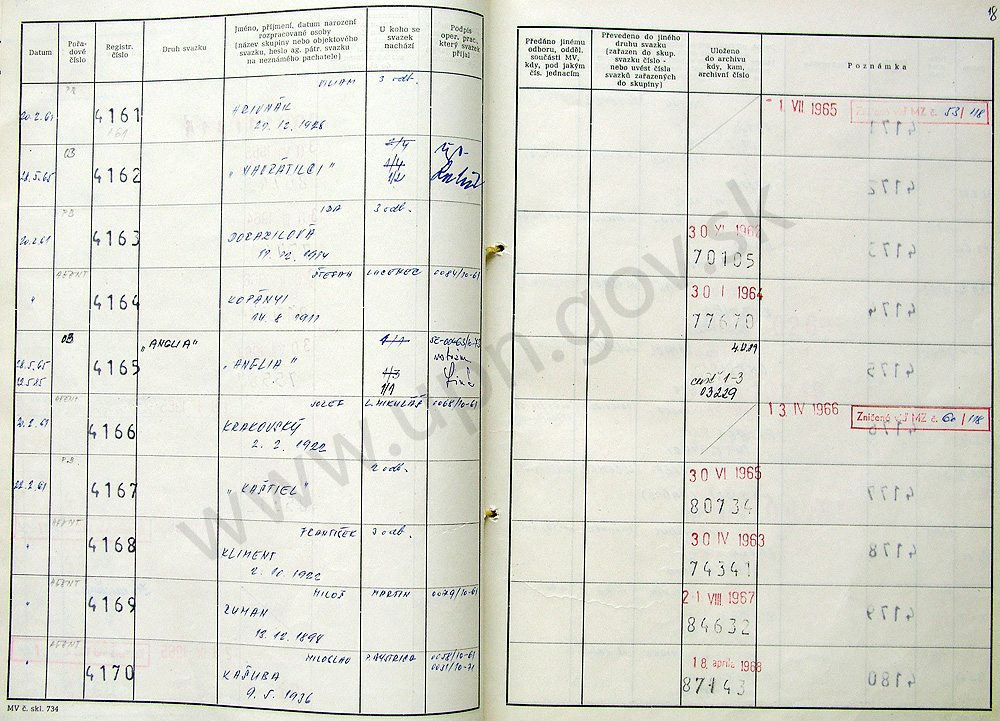 18
Datum
Pořa-
dové
číslo
Registr.
číslo
Druh svazku
Jméno, příjmení, datum narození
rozpracované osoby
(název skupiny nebo objektového
svazku, heslo ag. pátr. svazku
na neznámého pachatele)
U koho se
svazek
nachází
Podpis
oper. prac.,
který svazek
přijal
Předáno jinému
odboru, odděl.
součásti MV,
kdy, pod jakým
čís. jednacím
Převedeno do jiného
druhu svazku
(zařazen do skup.
svazku číslo -
nebo uvést čísla
svazků zařazených
do skupiny)
Uloženo
do archivu
kdy, kam,
archivní číslo
Poznámka
VILIAM 3 odb.
20.2.61 4161 HRIVNÁK
29.12.1928
- 1 VII 1965 Zničeno viď MZ č. 53/118
OB
28.5.65 4162
IDA 3 odb.
20.2.61 4163 DORAZILOVÁ
1924
70105
AGENT ŠTEFAN LUČENEC 0084/10-61
" 4164 KOPÁNYI
14.8.1911
30 I 1964
77670
OB "ANGLIA"
28.5.65 4165 "ANGLIA"
1/3
1/1
4.IV.89
časť 1-3
03229
AGENT JOZEF L. MIKULÁŠ 0068/10-61
20.2.61 4166 KRAKOVSKÝ
2.2.1922
13 IV 1966 Zničeno viď MZ č. 60/118
2 odb.
22.2.61 4167 "KAŠTIEL"
30 VI 1965
80734
AGENT FRANTIŠEK 3 odb.
" 4168 KLIMENT
1922
30 IV 1963
74341
AGENT MILOŠ MARTIN 0079/10-61
" 4169 ZUMAN
13.12.1894
21 VIII 1967
84632
AGENT MILOSLAV P. BYSTRICA 0058/10-61
" 4170 KAŠUBA
9.5.1936
18. dubna 1968
87143
MV č. skl. 734
www.upn.gov.sk